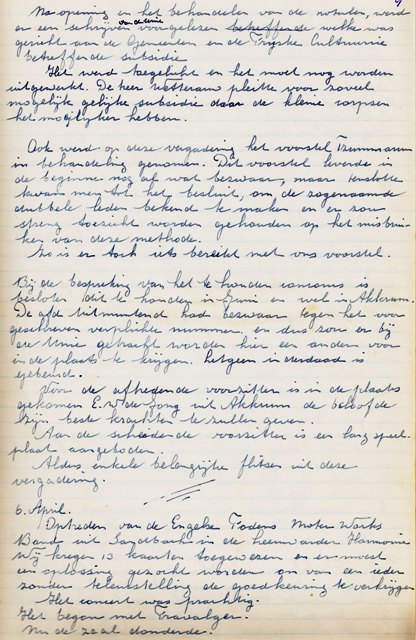 Na opening en het behandelen van de notulen, werd
er een schrijven van de Unie voorgelezen betreffende welke was
gericht aan de Gemeenten en de Fryske Cultuurrie
betreffende subsidie
Het werd toegelicht en het moet nog worden
uitgewerkt. De heer pleitte voor zoveel
mogelijke gelijke subsidie daar de kleine corpsen
het moeilijker hebben.
Ook werd op deze vergadering het voorstel Tzummarum
in behandeling genomen. Dit voorstel leverde in
de beginne nog al wat bezwaar, maar tenslotte
kwam men tot het besluit, om de zogenaamde
dubbele leden bekend te maken en er zou
streng toezicht worden gehouden op het misbrui-
ken van deze methode.
Zo is er toch iets bereikt met ons voorstel.
Bij de bespreking van het te houden concours is
besloten dit te houden in Juni en wel in Akkrum.
De afd uitmuntend had bezwaar tegen het voor
geschreven verplichte nummer, en dus zou er bij
de Unie getracht worden hier een ander voor
in de plaats te krijgen. hetgeen inderdaad is
gebeurd.
Voor de aftredende voorzitter is in de plaats
gekomen E. v/d Jong uit Akkrum de beloofde
zijn beste krachten te zullen geven.
Aan de scheidende voorzitter is een langspeel-
plaat aangeboden.
Aldus, enkele belangrijke flitsen uit deze
vergadering.
6. April.
Optreden van de Engelse Fodens Motor Works
Band uit Sandbach in de Leeuwarder Harmonie
Wij kregen 13 kaarten toegewezen en er moest
een oplossing gezocht worden om van een ieder
zonder teleurstelling de goedkeuring te verkrijgen
Het concert was prachtig.
Het begon met Travalgar.
Nu de zaal donderde.